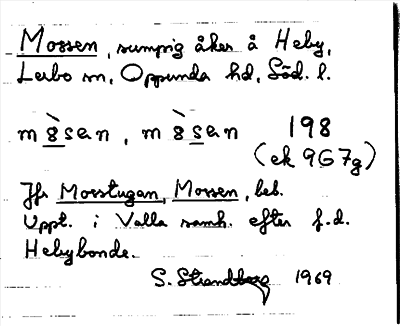 Mossen, sumpig åker å Heby,
Lerbo sn, Oppunda hd, Söd. l.
m 8̀ sεn, m 8̀ sεn 198
(ek 967g)
Jfr Mosstugan, Mossen, beb.
Uppt. i Valla samh. efter f.d.
Hebybonde.
S. Strandberg 1969